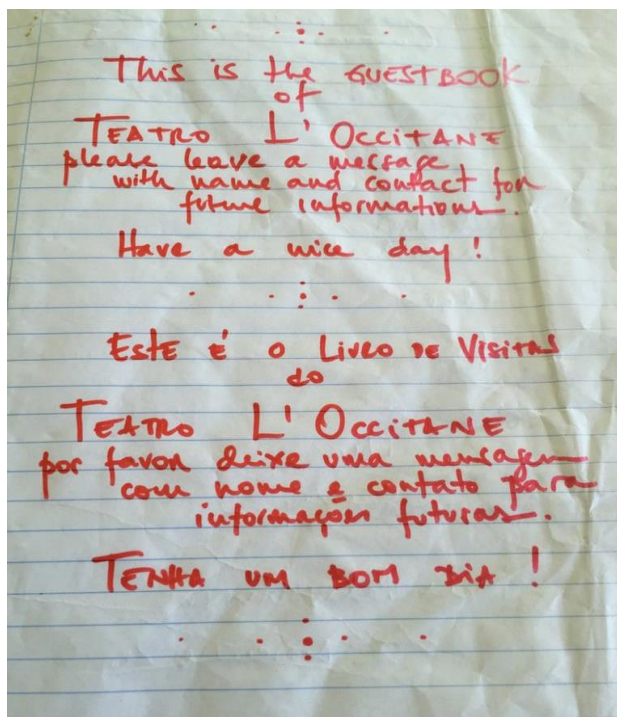 This is the GUESTBOOK
of
TEATRO L'OCCITANE
please leave a message
with name and contact for
future informations.
Have a nice day!
Este é o Livro de Visitas
do
TEATRO L'OCCITANE
por favor deixe uma mensagem
com nome e contato para
informações futuras.
TENHA UM BOM DIA!